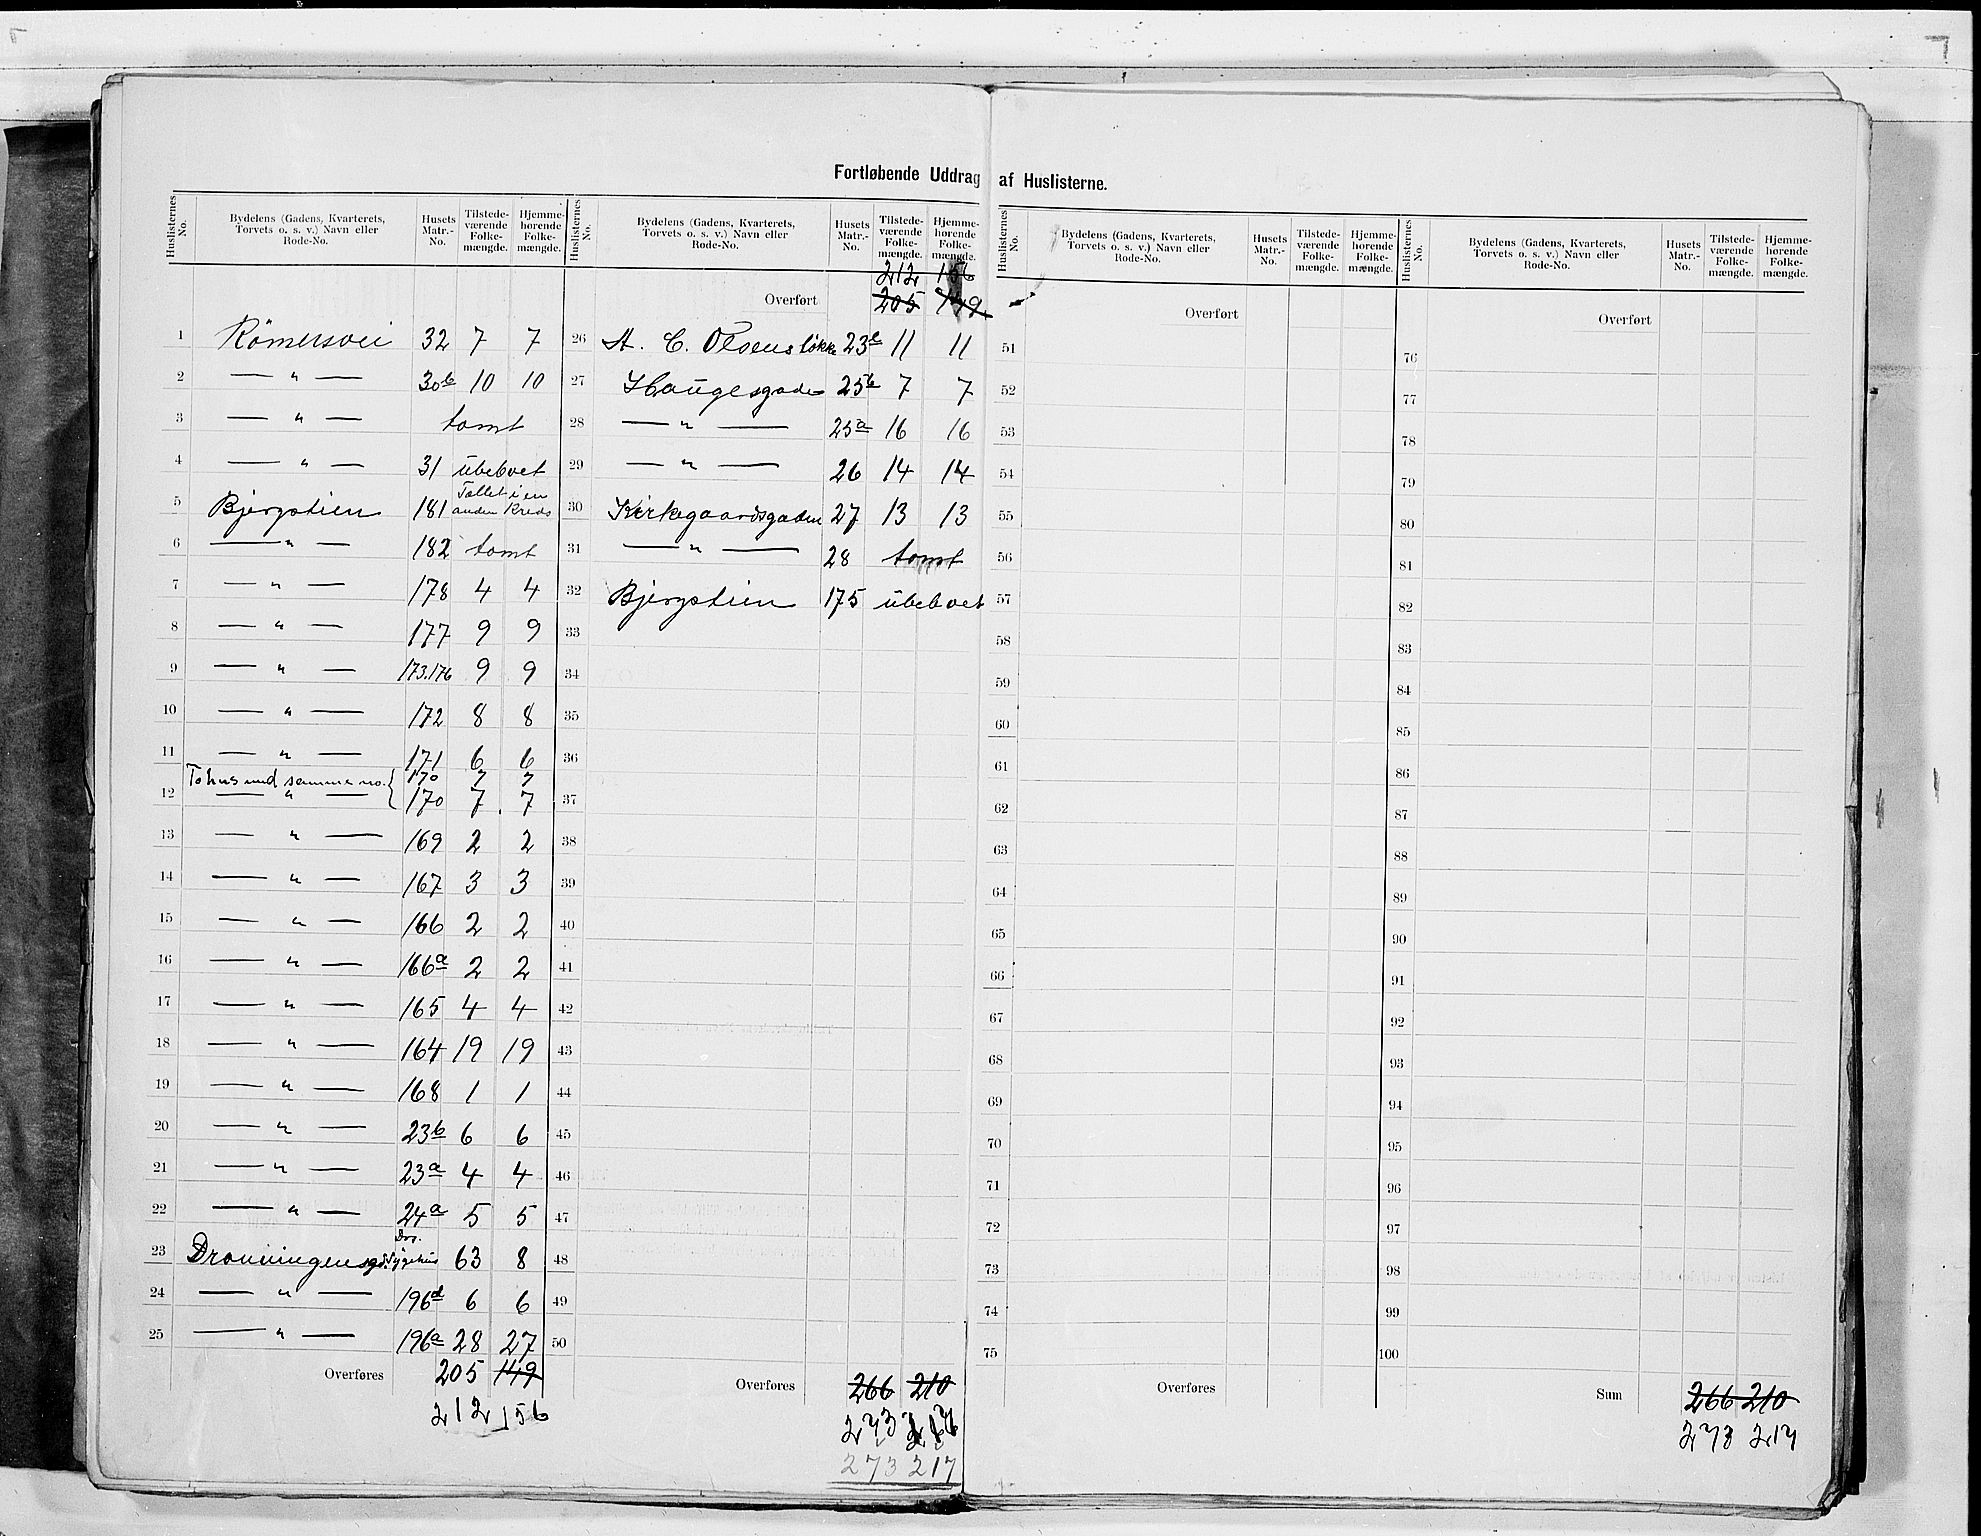 Fortløbende Uddrag af Huslisterne.
Huslisternes No. Bydelens (Gadens, Kvarterets, Torvets o. s. v.) Navn eller Rode-No. Husets Matr.-No. Tilstedeværende Folkemængde. Hjemmehørende Folkemængde.
1 Römersvei 32 7 7
2 — „ — 30b 10 10
3 — „ — tomt
4 — „ — 31 ubeboet
5 Bjergstien 181 Tallet i en anden Kreds
6 — „ — 182 tomt
7 — „ — 178 4 4
8 — „ — 177 9 9
9 — „ — 173.176 9 9
10 — „ — 172 8 8
11 — „ — 171 6 6
To hus med samme no. { 170 7 7
12 — „ — 170 7 7
13 — „ — 169 2 2
14 — „ — 167 3 3
15 — „ — 166 2 2
16 — „ — 166a 2 2
17 — „ — 165 4 4
18 — „ — 164 19 19
19 — „ — 168 1 1
20 — „ — 23b 6 6
21 — „ — 23a 4 4
22 — „ — 24a 5 5
23 Dronningensgd. Drs. Sygehus 63 8
24 — „ — 196d 6 6
25 — „ — 196a 28 27
Overføres 205 149
212 156
Huslisternes No. Bydelens (Gadens, Kvarterets, Torvets o. s. v.) Navn eller Rode-No. Husets Matr.-No. Tilstedeværende Folkemængde. Hjemmehørende Folkemængde.
212 156
Overført 205 149
26 A. C. Olsens løkke 23c 11 11
27 Haugesgade 25b 7 7
28 — „ — 25a 16 16
29 — „ — 26 14 14
30 Kirkegaardsgaden 27 13 13
31 — „ — 28 tomt
32 Bjergstien 175 ubeboet
33
34
35
36
37
38
39
40
41
42
43
44
45
46
47
48
49
50
Overføres 266 210
273 217
273 217
Huslisternes No. Bydelens (Gadens, Kvarterets, Torvets o. s. v.) Navn eller Rode-No. Husets Matr.-No. Tilstedeværende Folkemængde. Hjemmehørende Folkemængde.
Overført
51
52
53
54
55
56
57
58
59
60
61
62
63
64
65
66
67
68
69
70
71
72
73
74
75
Overføres
Huslisternes No. Bydelens (Gadens, Kvarterets, Torvets o. s. v.) Navn eller Rode-No. Husets Matr.-No. Tilstedeværende Folkemængde. Hjemmehørende Folkemængde.
Overført
76
77
78
79
80
81
82
83
84
85
86
87
88
89
90
91
92
93
94
95
96
97
98
99
100
Sum 266 210
273 217